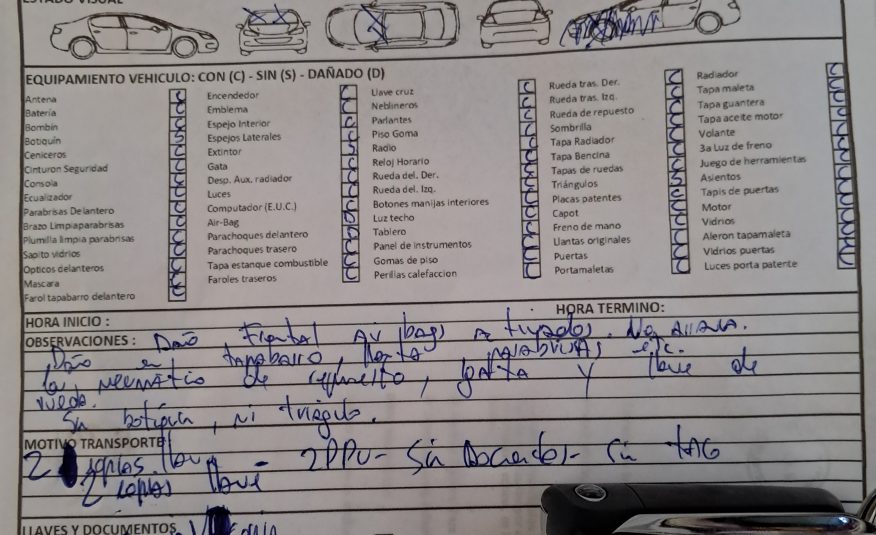 ESTADO VISUAL
EQUIPAMIENTO VEHICULO: CON (C) - SIN (S) - DAÑADO (D)
Antena
Batería
Bombín
Botiquín
Ceniceros
Cinturon Seguridad
Consola
Ecualizador
Parabrisas Delantero
Brazo Limpiaparabrisas
Plumilla limpia parabrisas
Sapito vidrios
Opticos delanteros
Mascara
Farol tapabarro delantero
Encendedor
Emblema
Espejo Interior
Espejos Laterales
Extintor
Gata
Desp. Aux. radiador
Luces
Computador (E.U.C.)
Air-Bag
Parachoques delantero
Parachoques trasero
Tapa estanque combustible
Faroles traseros
Llave cruz
Neblineros
Parlantes
Piso Goma
Radio
Reloj Horario
Rueda del. Der.
Rueda del. Izq.
Botones manijas interiores
Luz techo
Tablero
Panel de instrumentos
Gomas de piso
Perillas calefaccion
Rueda tras. Der.
Rueda tras. Izq.
Rueda de repuesto
Sombrilla
Tapa Radiador
Tapa Bencina
Tapas de ruedas
Triángulos
Placas patentes
Capot
Freno de mano
Llantas originales
Puertas
Portamaletas
Radiador
Tapa maleta
Tapa guantera
Tapa aceite motor
Volante
3a Luz de freno
Juego de herramientas
Asientos
Tapis de puertas
Motor
Vidrios
Aleron tapamaleta
Vidrios puertas
Luces porta patente
HORA INICIO :
HORA TERMINO:
OBSERVACIONES : Daño Frontal Air bags
Daño en tapabarro, parabrisas etc.
neumático de repuesto, gata y llave de
rueda.
Sin botiquín, ni triángulo.
MOTIVO TRANSPORTE
2 copias llave - 2PPU - Sin Documentos - Sin TAG
2 copias llave
LLAVES Y DOCUMENTOS